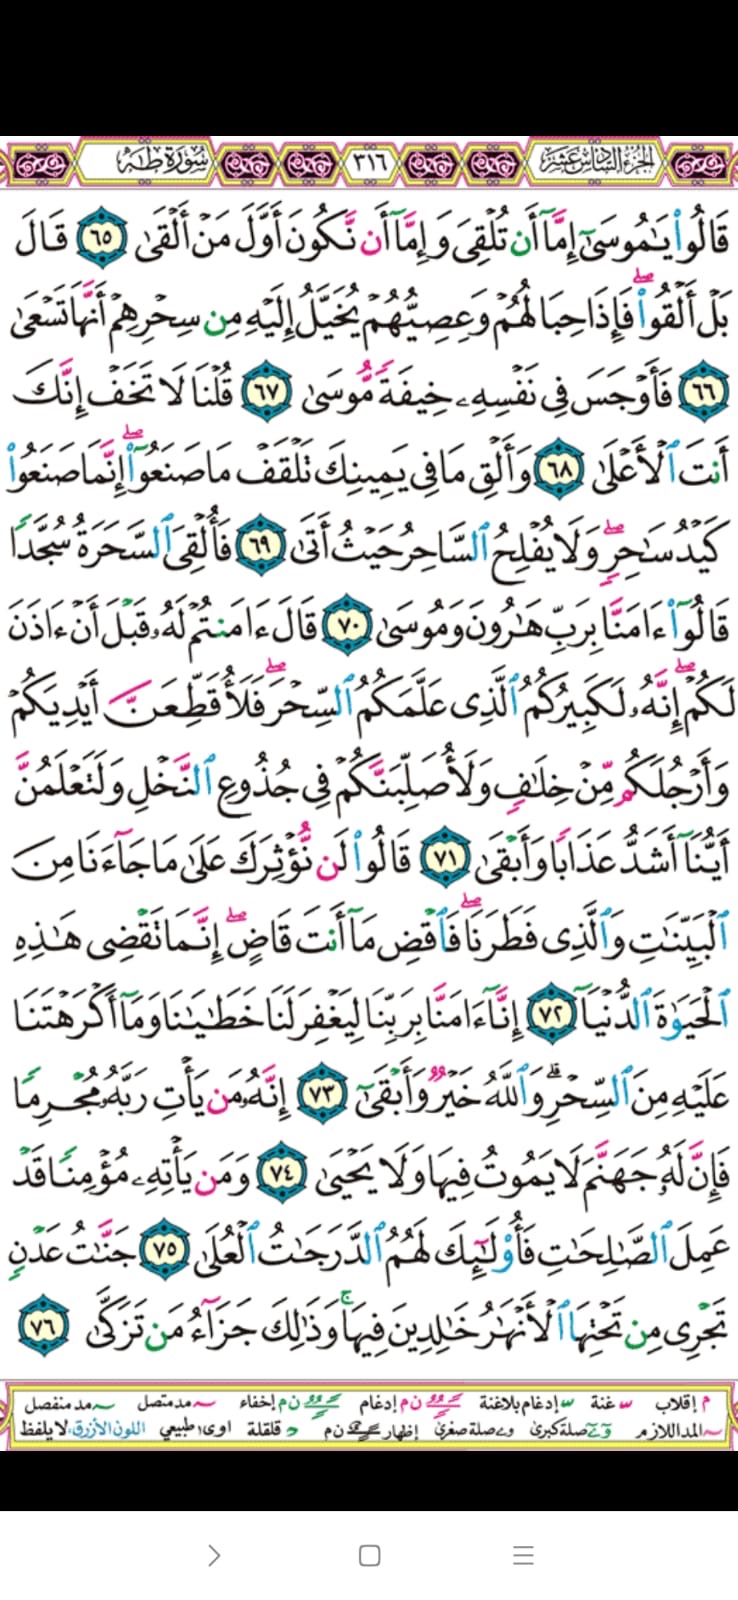 الجزء السادس عشر ٣١٦ سورة طه
قَالُواْ يَٰمُوسَىٰٓ إِمَّآ أَن تُلۡقِيَ وَإِمَّآ أَن نَّكُونَ أَوَّلَ مَنۡ أَلۡقَىٰ ٦٥ قَالَ
بَلۡ أَلۡقُواْۖ فَإِذَا حِبَالُهُمۡ وَعِصِيُّهُمۡ يُخَيَّلُ إِلَيۡهِ مِن سِحۡرِهِمۡ أَنَّهَا تَسۡعَىٰ
٦٦ فَأَوۡجَسَ فِي نَفۡسِهِۦ خِيفَةٗ مُّوسَىٰ ٦٧ قُلۡنَا لَا تَخَفۡ إِنَّكَ
أَنتَ ٱلۡأَعۡلَىٰ ٦٨ وَأَلۡقِ مَا فِي يَمِينِكَ تَلۡقَفۡ مَا صَنَعُوٓاْۖ إِنَّمَا صَنَعُواْ
كَيۡدُ سَٰحِرٖۖ وَلَا يُفۡلِحُ ٱلسَّاحِرُ حَيۡثُ أَتَىٰ ٦٩ فَأُلۡقِيَ ٱلسَّحَرَةُ سُجَّدٗا
قَالُوٓاْ ءَامَنَّا بِرَبِّ هَٰرُونَ وَمُوسَىٰ ٧٠ قَالَ ءَامَنتُمۡ لَهُۥ قَبۡلَ أَنۡ ءَاذَنَ
لَكُمۡۖ إِنَّهُۥ لَكَبِيرُكُمُ ٱلَّذِي عَلَّمَكُمُ ٱلسِّحۡرَۖ فَلَأُقَطِّعَنَّ أَيۡدِيَكُمۡ
وَأَرۡجُلَكُم مِّنۡ خِلَٰفٖ وَلَأُصَلِّبَنَّكُمۡ فِي جُذُوعِ ٱلنَّخۡلِ وَلَتَعۡلَمُنَّ
أَيُّنَآ أَشَدُّ عَذَابٗا وَأَبۡقَىٰ ٧١ قَالُواْ لَن نُّؤۡثِرَكَ عَلَىٰ مَا جَآءَنَا مِنَ
ٱلۡبَيِّنَٰتِ وَٱلَّذِي فَطَرَنَاۖ فَٱقۡضِ مَآ أَنتَ قَاضٍۖ إِنَّمَا تَقۡضِي هَٰذِهِ
ٱلۡحَيَوٰةَ ٱلدُّنۡيَآ ٧٢ إِنَّآ ءَامَنَّا بِرَبِّنَا لِيَغۡفِرَ لَنَا خَطَٰيَٰنَا وَمَآ أَكۡرَهۡتَنَا
عَلَيۡهِ مِنَ ٱلسِّحۡرِۗ وَٱللَّهُ خَيۡرٞ وَأَبۡقَىٰٓ ٧٣ إِنَّهُۥ مَن يَأۡتِ رَبَّهُۥ مُجۡرِمٗا
فَإِنَّ لَهُۥ جَهَنَّمَ لَا يَمُوتُ فِيهَا وَلَا يَحۡيَىٰ ٧٤ وَمَن يَأۡتِهِۦ مُؤۡمِنٗا قَدۡ
عَمِلَ ٱلصَّٰلِحَٰتِ فَأُوْلَٰٓئِكَ لَهُمُ ٱلدَّرَجَٰتُ ٱلۡعُلَىٰ ٧٥ جَنَّٰتُ عَدۡنٖ
تَجۡرِي مِن تَحۡتِهَا ٱلۡأَنۡهَٰرُ خَٰلِدِينَ فِيهَاۚ وَذَٰلِكَ جَزَآءُ مَن تَزَكَّىٰ ٧٦
م إقلاب غنة إدغام بلاغنة ن م إدغام ن م إخفاء مد متصل مد منفصل
المد اللازم صلة كبرى صلة صغرى إظهار ن م قلقلة اوى طبيعي اللون الأزرق لا يلفظ